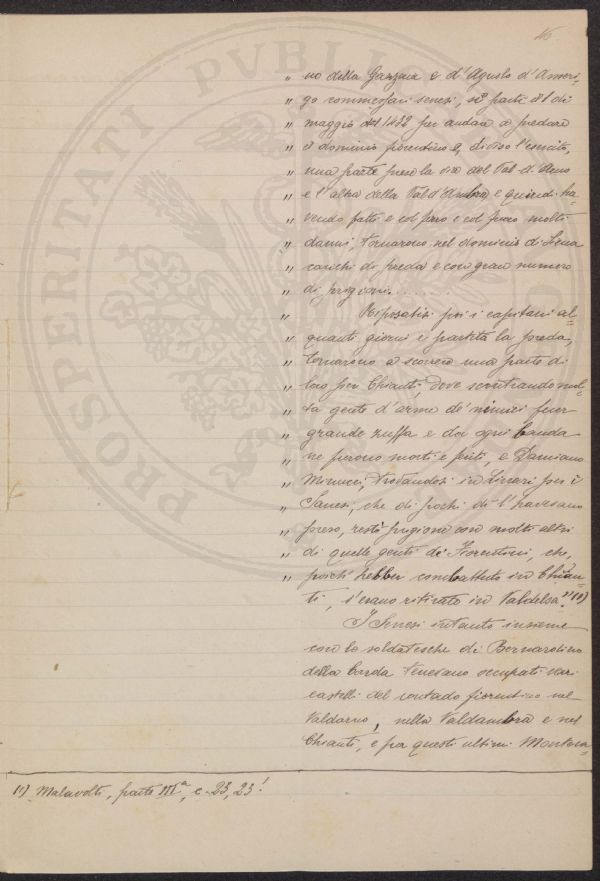 16.
" no della Gazzaia e d'Agusto d'Ameri-
" go commessari senesi, si partì a 8 di
" maggio del 1432 per andare a predare
" il dominio fiorentino e, diviso l'esercito,
" una parte prese la via del Val d'Arno
" e l'altra della Val d'Ambra e quindi ha-
" vendo fatti e col ferro e col fuoco molti
" danni, tornarono nel dominio di Siena
" carichi di preda e con gran numero
" di prigioni........
" Riposatisi poi i capitani al-
" quanti giorni e partita la preda,
" tornarono a scorrere una parte di
" loro per Chianti, dove scontrando mol-
" ta gente d'arme de' nimici fecer
" grande zuffa e da ogni banda
" ne furono morti e feriti, e Damiano
" Minucci, trovandosi in per i
" Sanesi, che di pochi dì l'havevano
" preso, restò prigione con molti altri
" di quelle genti de' Fiorentini, che,
" poich'hebber combattuto in Chian-
ti, s'erano ritirate in Valdelsa." (1)
I Senesi intanto insieme
con le soldatesche di Bernardino
della Carda tenevano occupati vari
castelli del contado fiorentino nel
Valdarno, nella Valdambra e nel
Chianti, e fra questi ultimi Monteca-
(1) Malavolti, parte IIIª, c. 23, 23ᵗ
PVBLICAE
PROSPERITATI